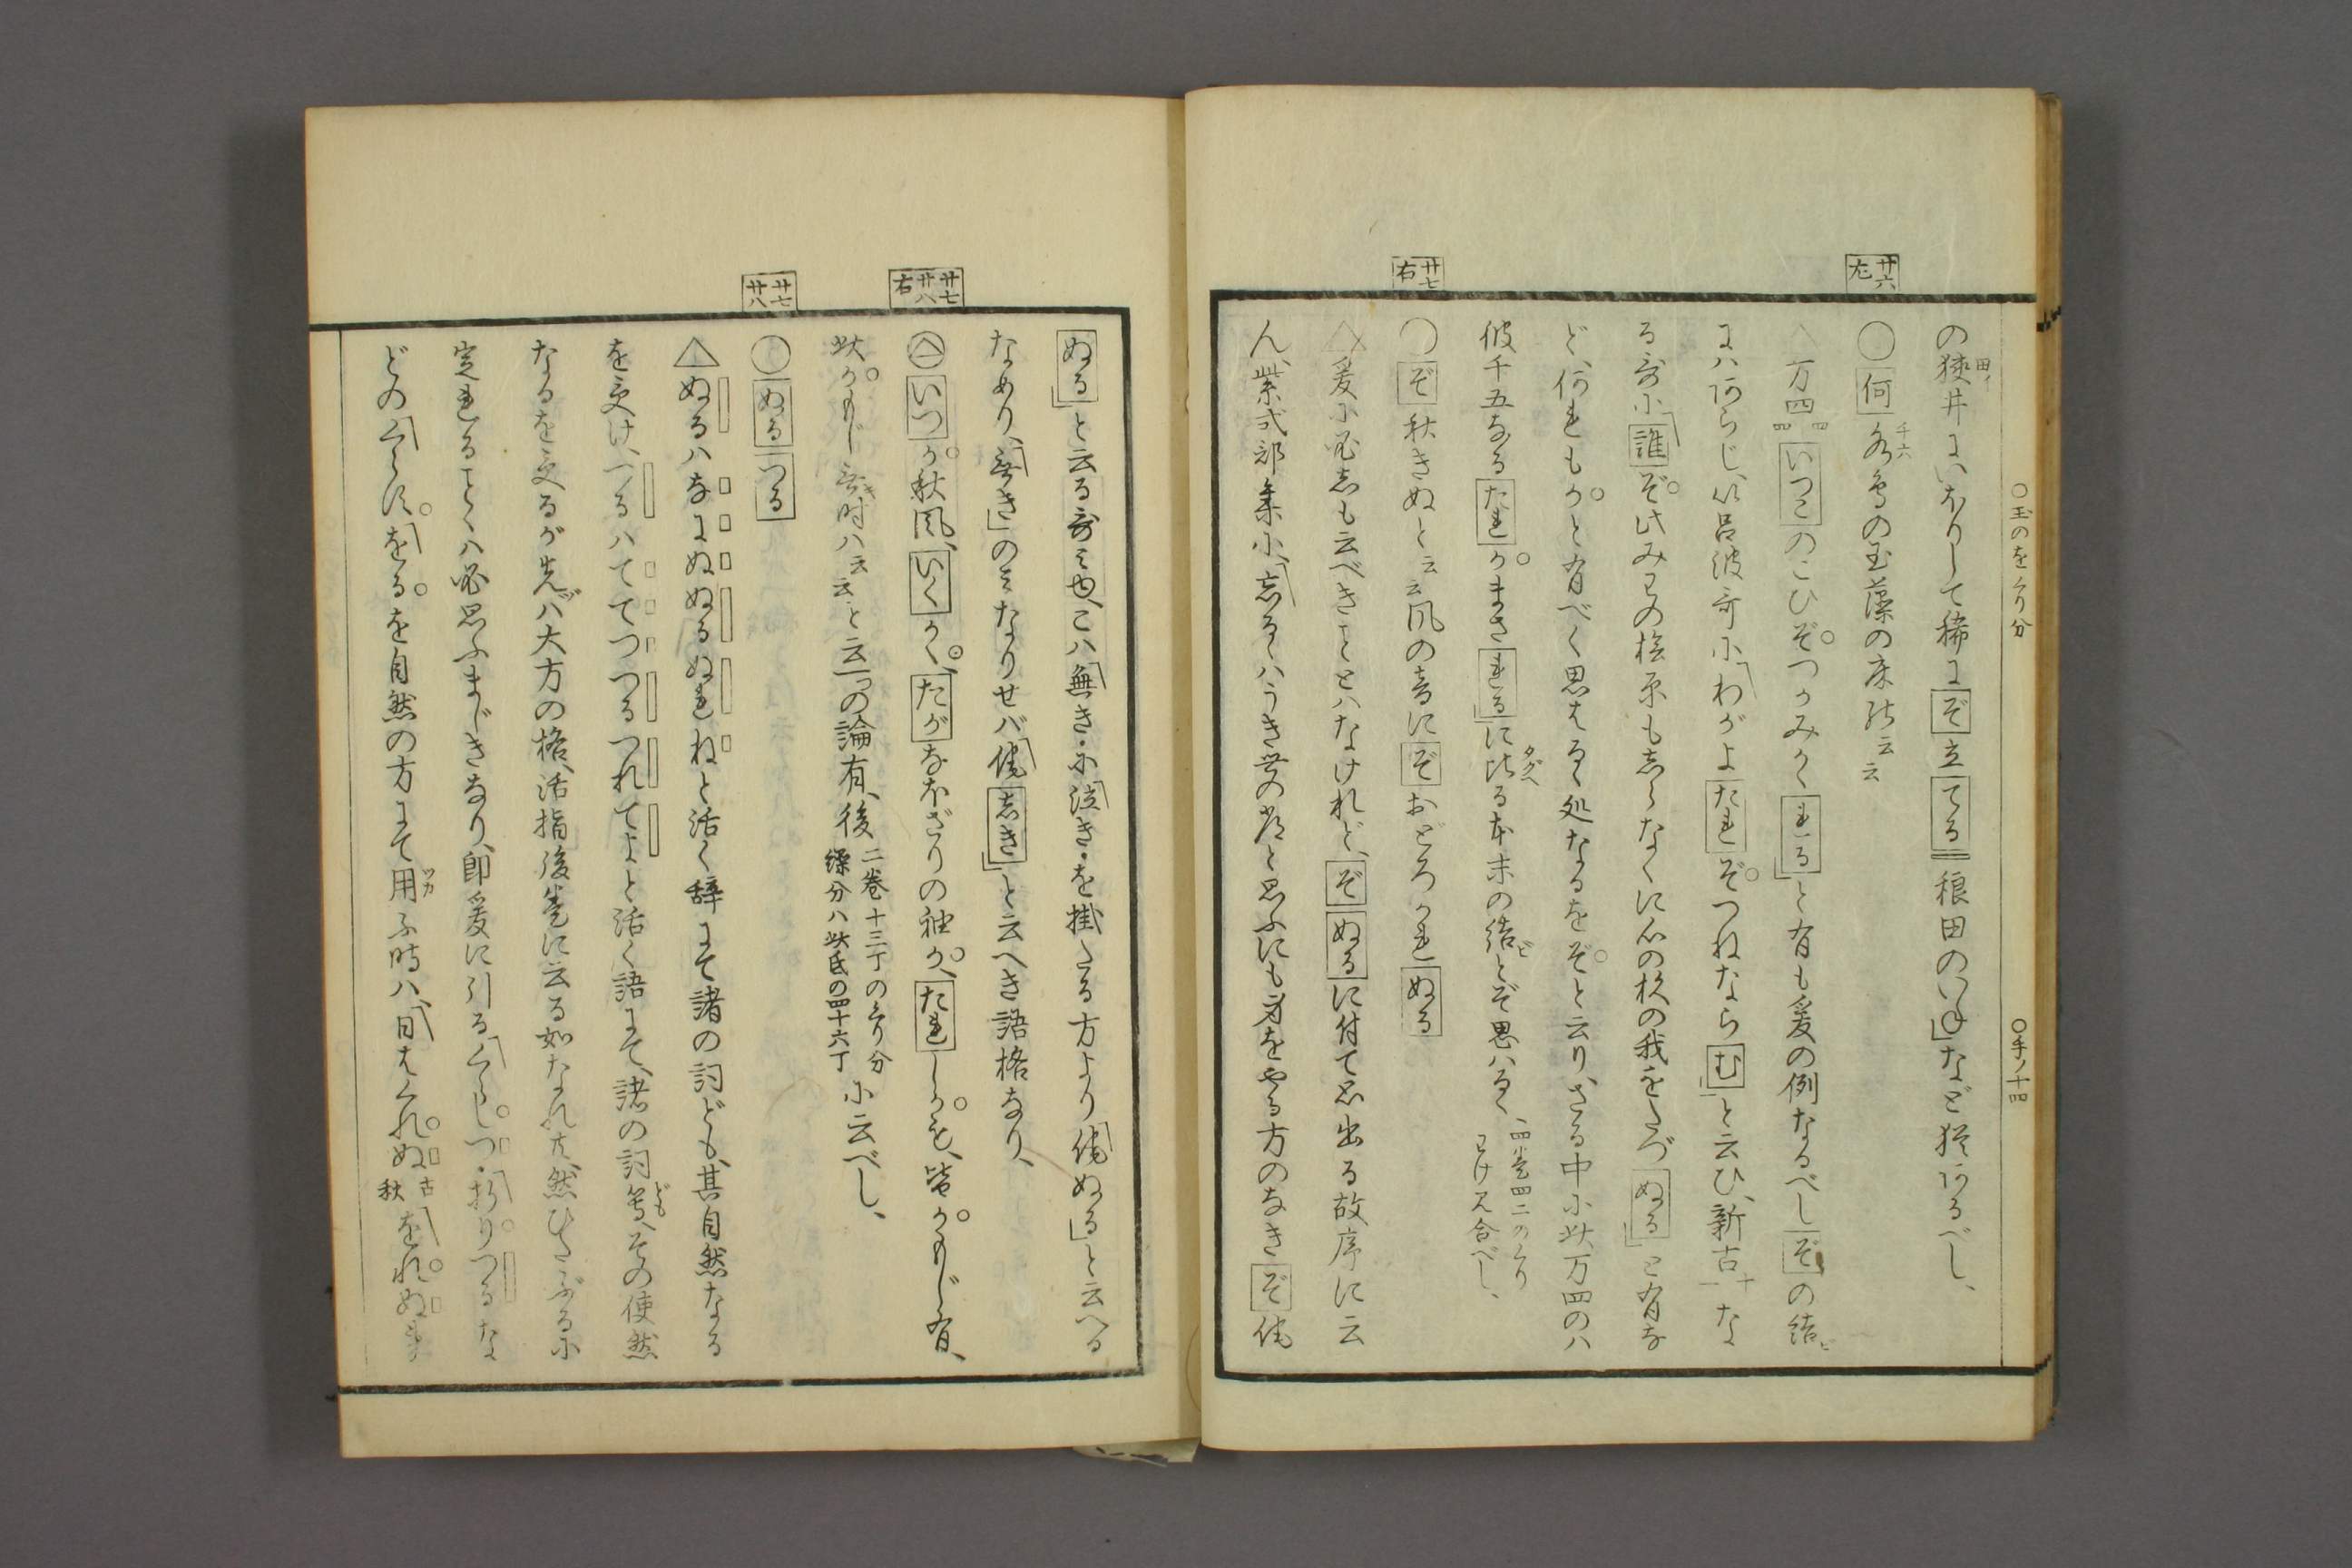 ○玉のをくり分　○手ノ十四
廿六左
の狭井にいほりして稀にぞ立てる稂田のいね」など猶あるべし、
○何 千六 水鳥の玉藻の床 云云
万四 四四 いつこのこひぞつかみかゝれる」と有も爰の例なるべしぞの結ビ
にハあらじ、以呂波哥に「わがよたれぞつねならむ」と云ひ、新古十一な
る哥に「誰ぞ此みわの桧原もしらなくに心の杉の我をたづぬる」と有な
ど、何れもかと有べく思はるゝ処なるをぞと云り、さる中に此万四のハ
彼千五なるたれかまされるに比る本末の結ビとぞ思ハるゝ、四巻四二のくり
わけ見合べし、
廿七右
○ぞ秋きぬと云云風の音にぞおどろかれぬる
△爰に必しも云べきことハなけれど、ぞぬるに付て思出る故序に云
ん、紫式部集に、「忘るゝハうき世の常と思ふにも身をやる方のなきぞ侘
ぬる」と云る哥ミ也、こハ「無き・に「泣き・を掛たる方より「侘ぬる」と云へる
なめり、「無き」のミなりせバ「侘しき」と云へき語格なり、
廿七廿八右
いつか秋風、いくかゝ、たがなほざりの袖か、たれしかも、皆かもじ有、
此かもじ無き時ハ云云と云一つの論有、後二巻十三丁のくり分
繰分ハ此氐の四十六丁に云べし、
廿七廿八
○ぬるつる
△ぬるハなにぬぬるぬれねと活く辞にて諸の詞ども、其自然なる
を受け、つるハててつつるつれてよと活く語にて、諸の詞等、その使然
なるを受るが先ヅハ大方の格、活指後巻に云る如なれ共、然ひたぶるに
定れることゝハ必思ふまじきなり、即爰に引る「くらしつ・「折りつるな
どの「くらす「をるを自然の方にて用ふ時ハ、「日もくれぬ古秋「をれぬ